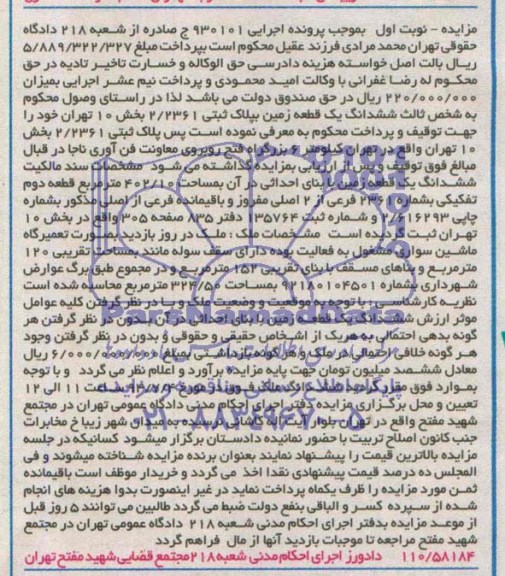 مزایده - نوبت اول بموجب پرونده اجرایی ۹۳۰۱۰۱ ج صادره از شعبه ۲۱۸ دادگاه
حقوقی تهران محمد مرادی فرزند عقیل محکوم است بپرداخت مبلغ ۵/۸۸۹/۳۲۲/۳۲۷
ریال بالت اصل خواسته هزینه دادرسی حق الوکاله و خسارت تاخیر تادیه در حق
محکوم له رضا غفرانی با وکالت امید محمودی و پرداخت نیم عشر اجرایی بمیزان
۲۲۰/۰۰۰/۰۰۰ ریال در حق صندوق دولت می باشد لذا در راستای وصول محکوم
به شخص ثالث ششدانگ یک قطعه زمین بپلاک ثبتی ۲/۲۳۶۱ بخش ۱۰ تهران خود را
جهت توقیف و پرداخت محکوم به معرفی نموده است پس پلاک ثبتی ۲/۲۳۶۱ بخش
۱۰ تهران واقع در تهران کیلومتر ۶ بزرگراه فتح روبروی معاونت فن آوری ناجا در قبال
مبالغ فوق توقیف و پس از ارزیابی بمزایده گذاشته می شود مشخصات سند مالکیت
ششدانگ یک قطعه زمین با بنای احداثی در آن بمساحت ۴۰۲/۱۰ مترمربع قطعه دوم
تفکیکی بشماره ۲۳۶۱ فرعی از ۲ اصلی مفروز و باقیمانده فرعی از اصلی مذکور بشماره
چاپی ۲/۶۱۶۲۹۳ و شماره ثبت ۱۳۵۷۶۴ دفتر ۸۳۵ صفحه ۳۰۵ واقع در بخش ۱۰
تهران ثبت گردیده است مشخصات ملک : ملک در روز بازدید بصورت تعمیرگاه
ماشین سواری مشغول به فعالیت بوده دارای سقف سوله مانند بمساحت تقریبی ۱۲۰
مترمربع و بناهای مسقف با بنای تقریبی ۱۵۲ مترمربع و در مجموع طبق برگ عوارض
شهرداری شماره ۲۲۱۸۰۱۰۴۵۰۱ بمساحت ۳۲۴/۵۰ مترمربع محاسبه شده است
نظریه کارشناسی : با توجه به موقعیت و وضعیت ملک و با در نظر گرفتن کلیه عوامل
موثر ارزش ششدانگ یک قطعه زمین با بنای احداثی در آن بدون در نظر گرفتن هر
گونه بدهی احتمالی به هر یک از اشخاص حقیقی و حقوقی و بدون در نظر گرفتن وجود
هر گونه خلافی احتمالی در ملک و هر گونه بازداشتی بمبلغ ۶/۰۰۰/۰۰۰/۰۰۰ ریال
معادل ششصد میلیون تومان جهت پایه مزایده برآورد و اعلام نظر می گردد و با توجه
بموارد فوق مقرر گردید ششدانگ ملک فوق در مورخ ساعت ۱۱ الی ۱۲
تعیین و محل برگزاری مزایده دفتر اجرای احکام مدنی دادگاه عمومی تهران در مجتمع
شهید مفتح واقع در تهران بلوار آیت اله کاشانی نرسیده به میدان شهر زیبا خ مخابرات
جنب کانون اصلاح تربیت با حضور نماینده دادستان برگزار میشود کسانیکه در جلسه
مزایده بالاترین قیمت را پیشنهاد نمایند بعنوان برنده مزایده شناخته میشوند و فی
المجلس ده درصد قیمت پیشنهادی نقدا اخذ می گردد و خریدار موظف است باقیمانده
ثمن مورد مزایده را ظرف یکماه پرداخت نماید در غیر اینصورت بدوا هزینه های انجام
شده از سپرده کسر و الباقی بنفع دولت ضبط می گردد طالبین می توانند ۵ روز قبل
از موعد مزایده بدفتر اجرای احکام مدنی شعبه ۲۱۸ دادگاه عمومی تهران در مجتمع
شهید مفتح مراجعه تا موجبات بازدید آنها از مال فراهم گردد
۱۱۰/۵۸۱۸۴ دادورز اجرای احکام مدنی شعبه ۲۱۸ مجتمع قضایی شهید مفتح تهران